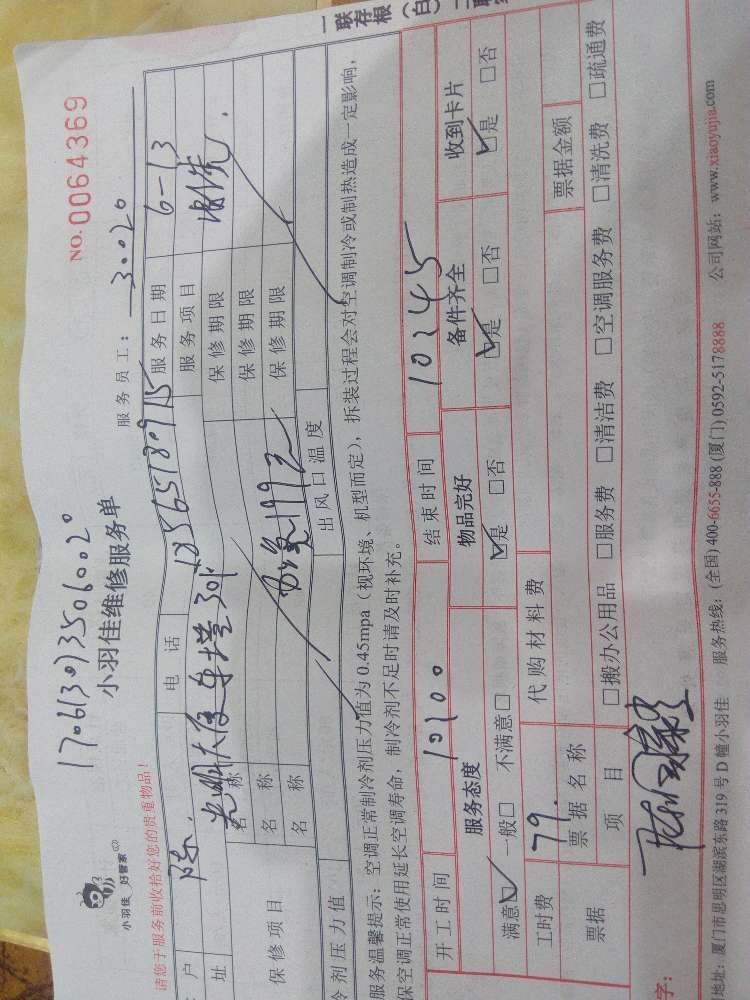 一联存根(白)二联
NO.0064369
1706130133506020
小羽佳 好管家
小羽佳维修服务单
服务员工: 30020
请您于服务前收拾好您的贵重物品!
户 陈 电 话 18565180915 服务日期 6-13
址 光明大厦 服务项目
保修项目 名 称 保修期限
名 称 保修期限
名 称 保修期限
冷剂压力值 出风口温度
服务温馨提示: 空调正常制冷剂压力值为 0.45mpa(视环境、机型而定), 拆装过程会对空调制冷或制热造成一定影响,
保空调正常使用延长空调寿命, 制冷剂不足时请及时补充。
开工时间 10:00 结束时间 10:45
服务态度 物品完好 备件齐全 收到卡片
满意☑ 一般□ 不满意□ ☑是 □否 ☑是 □否 ☑是 □否
工时费 79. 代购材料费
票据 票据名称 票据金额
项 目 □搬办公用品 □服务费 □清洁费 □空调服务费 □清洗费 □疏通费
字:
地址: 厦门市思明区湖滨东路 319 号 D 幢小羽佳 服务热线: (全国) 400-6655-888 (厦门) 0592-5178888 公司网站: www.xiaoyujia.com